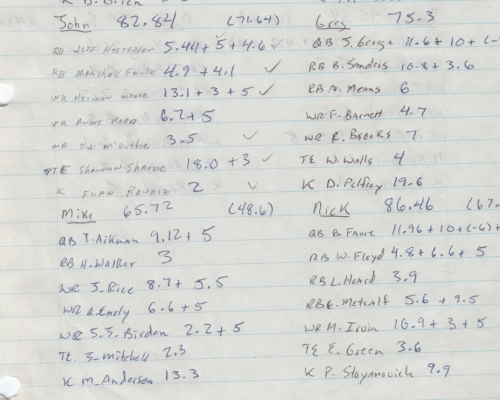 K B. Bllen
John 82.84 (71.64)
QB Jeff Hostetler 5.44 + 5 + 4.6 ✓
RB Marshall Faulk 4.9 + 4.1 ✓
WR Herman Moore 13.1 + 3 + 5 ✓
WR Andre Reed 6.7 + 5
WR O.J. McDuffie 3.5 ✓
TE Shannon Sharpe 18.0 + 3 ✓
K Fuad Reveiz 2 ✓
Mike 65.72 (48.6)
QB T. Aikman 9.12 + 5
RB H. Walker 3
WR J. Rice 8.7 + 5.5
WR Q. Early 6.6 + 5
WR S.S. Birden 2.2 + 5
TE S. Mitchell 2.3
K M. Anderson 13.3
Greg 75.3
QB J. George 11.6 + 10 + (-
RB B. Sanders 10.8 + 3.6
RB N. Means 6
WR F. Barnett 4.7
WR R. Brooks 7
TE W. Walls 4
K D. Pelfrey 19.6
Nick 86.46 (67.
QB B. Favre 11.96 + 10 + (-6) +
RB W. Floyd 4.8 + 6.6 + 5
RB L. Heard 3.9
RB E. Metcalf 5.6 + 9.5
WR M. Irvin 10.9 + 3 + 5
TE E. Green 3.6
K P. Stoyanovich 9.9